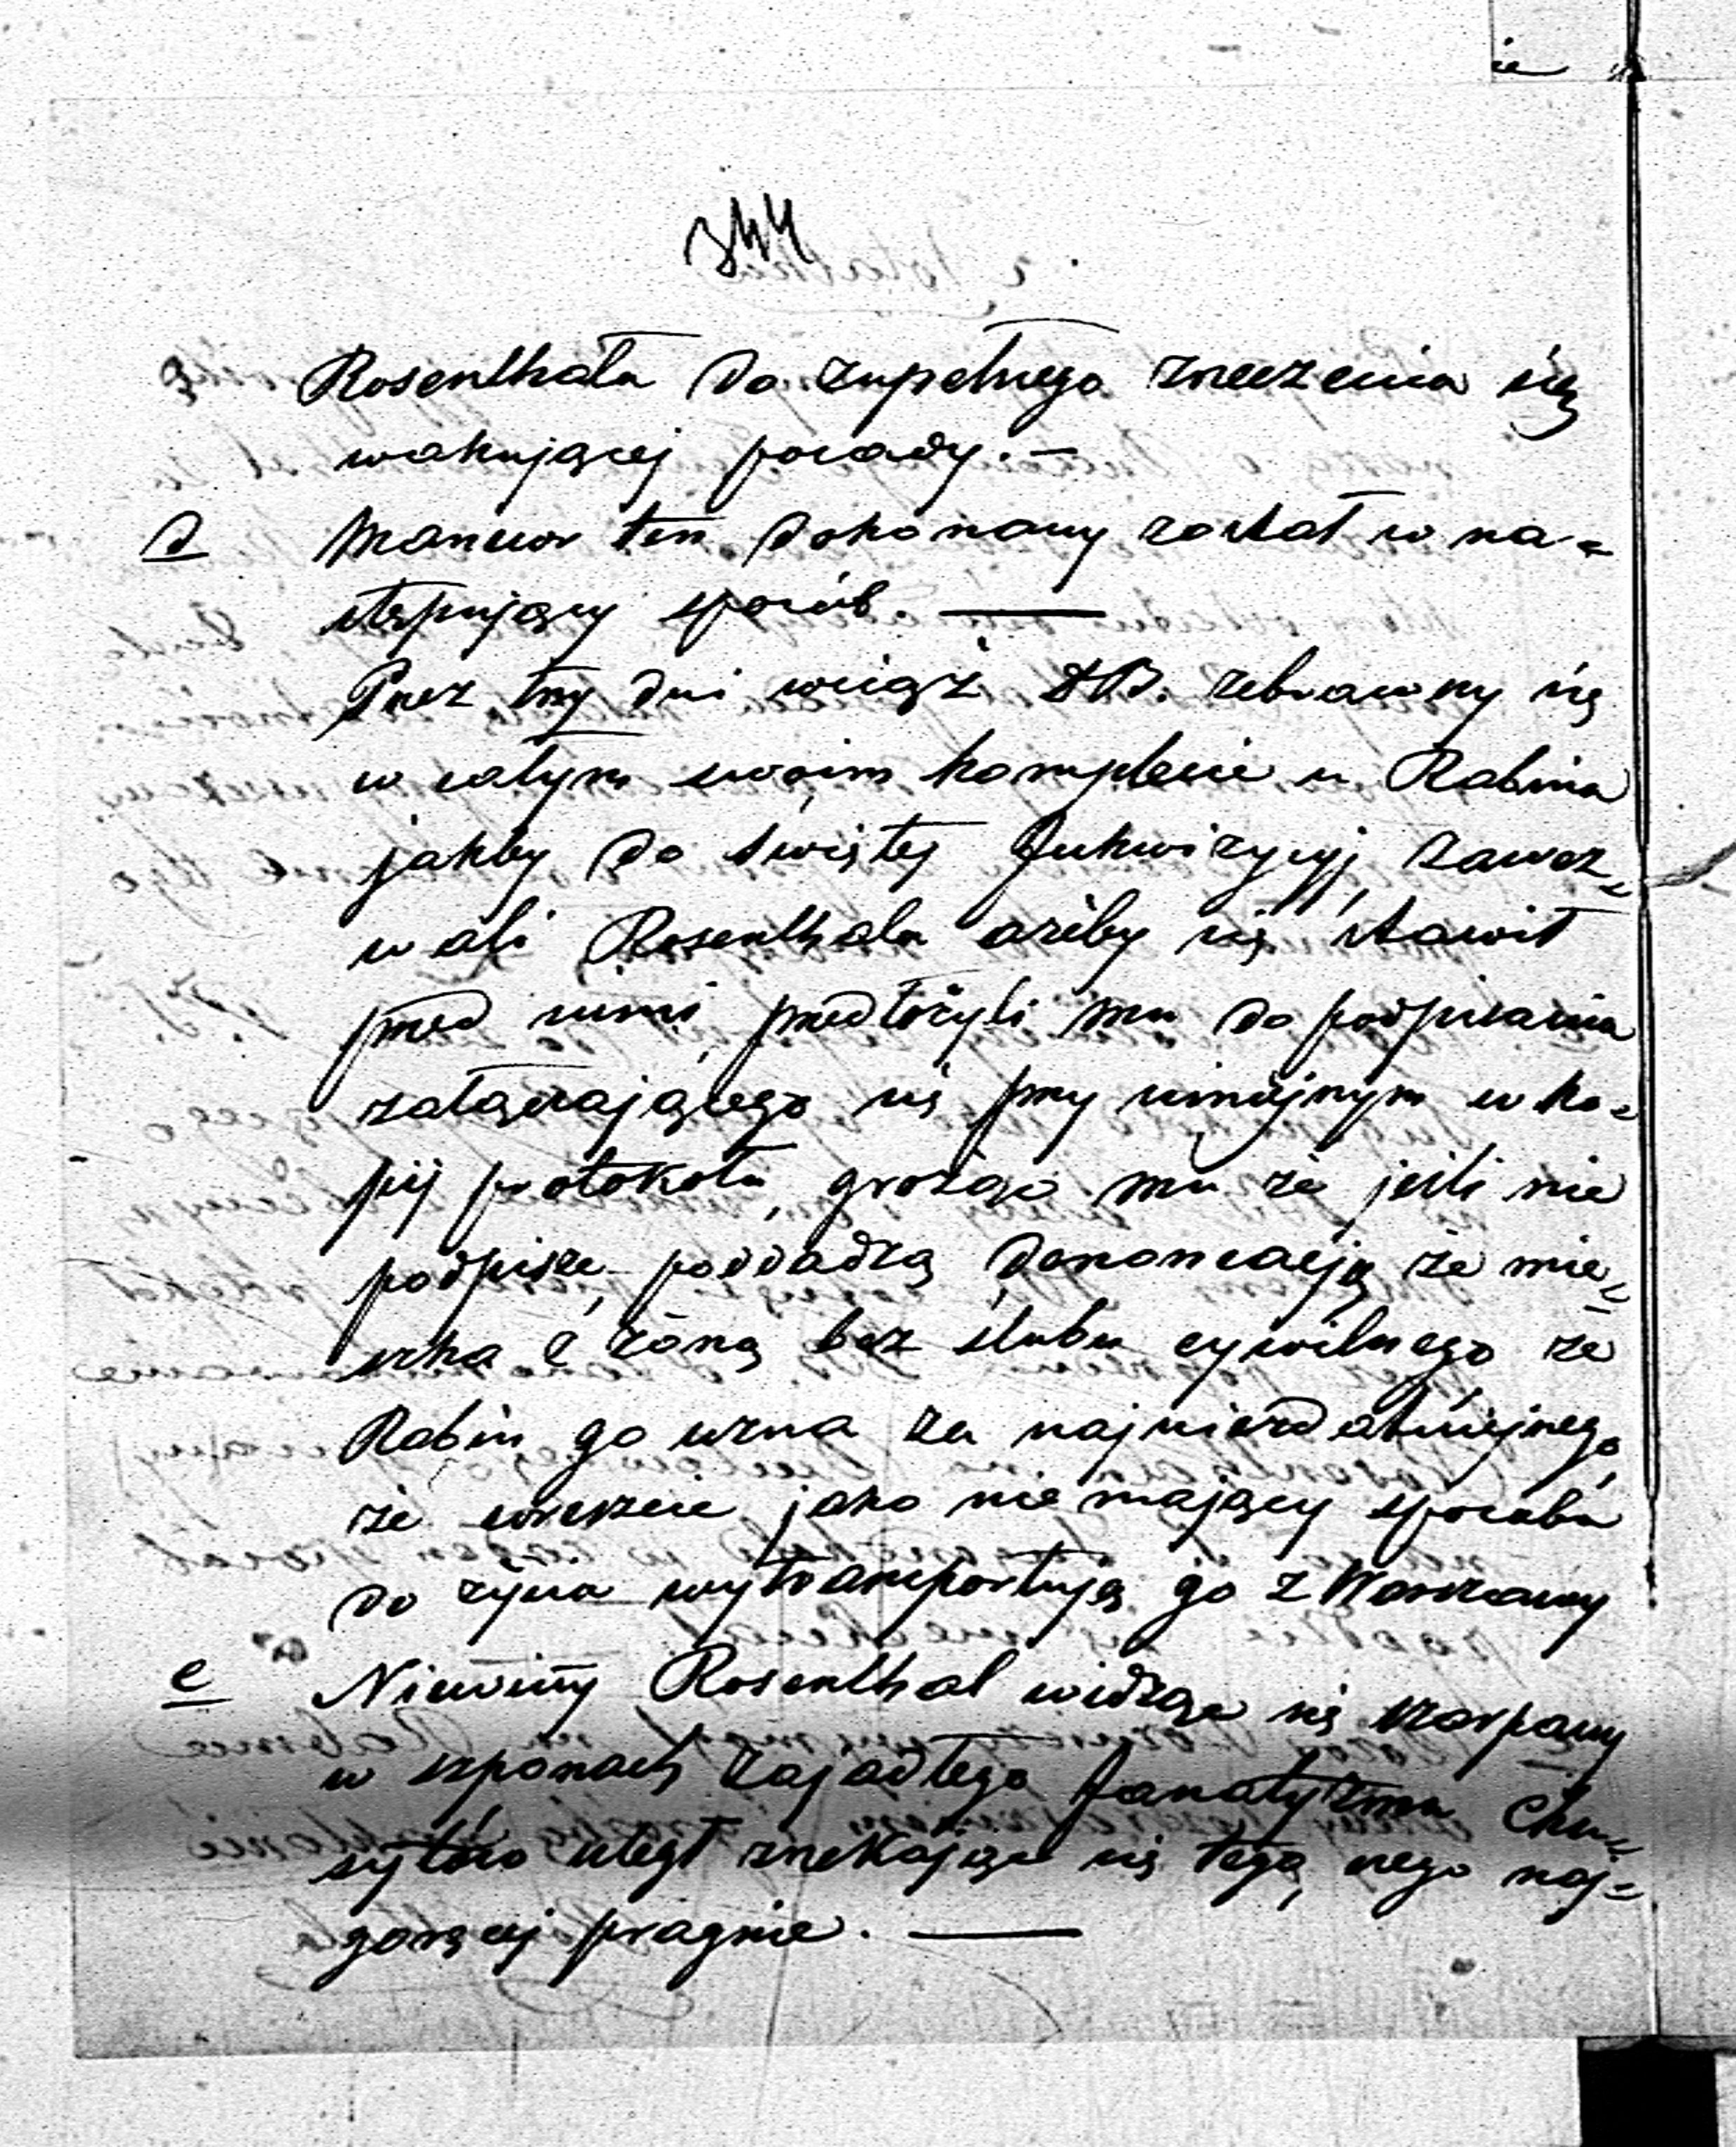 344
Rosenthala do zupełnego zrzeczenia się
wakującej posady. —
d Manewr ten dokonany został w na=
stępujący sposób. —
Przez trzy dni wciąż DB. zebrawszy się
w całym swoim komplecie u Rabina
jakby do świętej Inkwizycyj, zawez=
wali Rosenthala ażeby się stawił
przed nimi, przedłożyli mu do podpisania
załączającego się przy niniejnym w ko=
pij protokołu, grożąc mu że jeśli nie
podpisze, poddadzą denoncacją że mie=
szka z żoną bez ślubu cywilnego że
Rabin go uzna za najniezdatniejnego,
że wreszcie jako nie mający sposobu
do życia wytransportują go z Warszawy
e Niewinny Rosenthal widząc się szarpany
w szponach zajadłego fanatyzmu Chu=
sytów uległ zrzekając się tego, czego naj=
goręcej pragnie. —